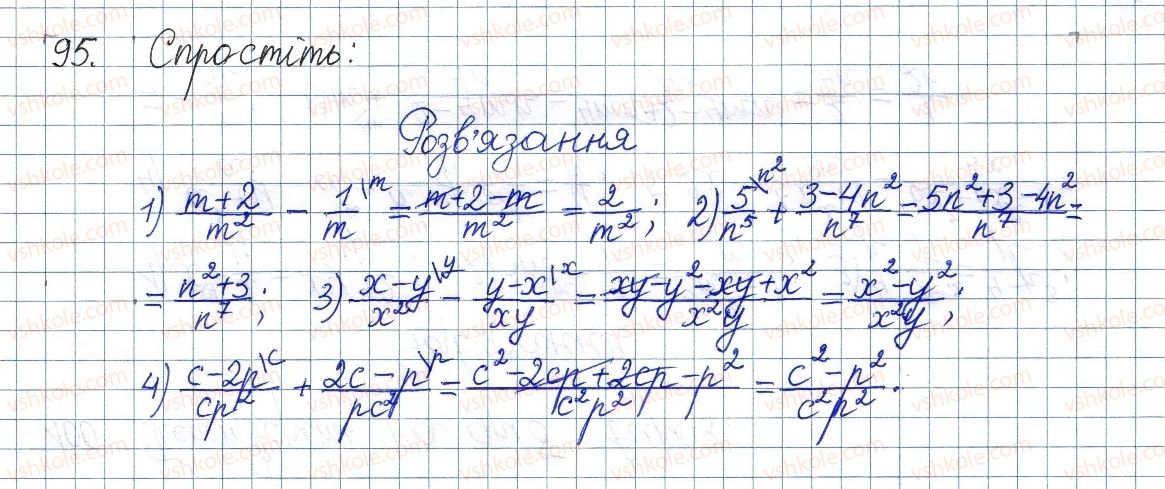 95. Спростіть:
Розв'язання
1) (m+2)/m² − 1\ᵐ/m = (m+2−m)/m² = 2/m²; 2) 5\ⁿ²/n⁵ + (3−4n²)/n⁷ = (5n²+3−4n²)/n⁷ =
= (n²+3)/n⁷; 3) (x−y)\ʸ/x² − (y−x)\ˣ/xy = (xy−y²−xy+x²)/x²y = (x²−y²)/x²y;
4) (c−2p)\ᶜ/cp² + (2c−p)\ᵖ/pc² = (c²−2cp+2cp−p²)/c²p² = (c²−p²)/c²p².
vshkole.com